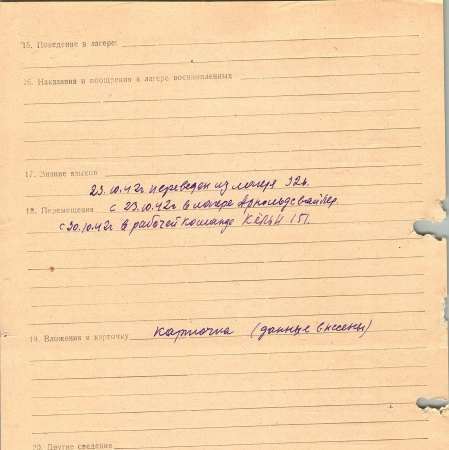 15. Поведение в лагере:
16. Наказания и поощрения в лагере военнопленных
17. Знание языков
23.10.42г переведен из лагеря 326.
18. Перемещения с 23.10.42г в лагере Арнольдсвайлер.
с 30.10.42г в рабочей команде КЁЛЬН 151.
19. Вложения в карточку карточка (данные внесены)
20. Другие сведения